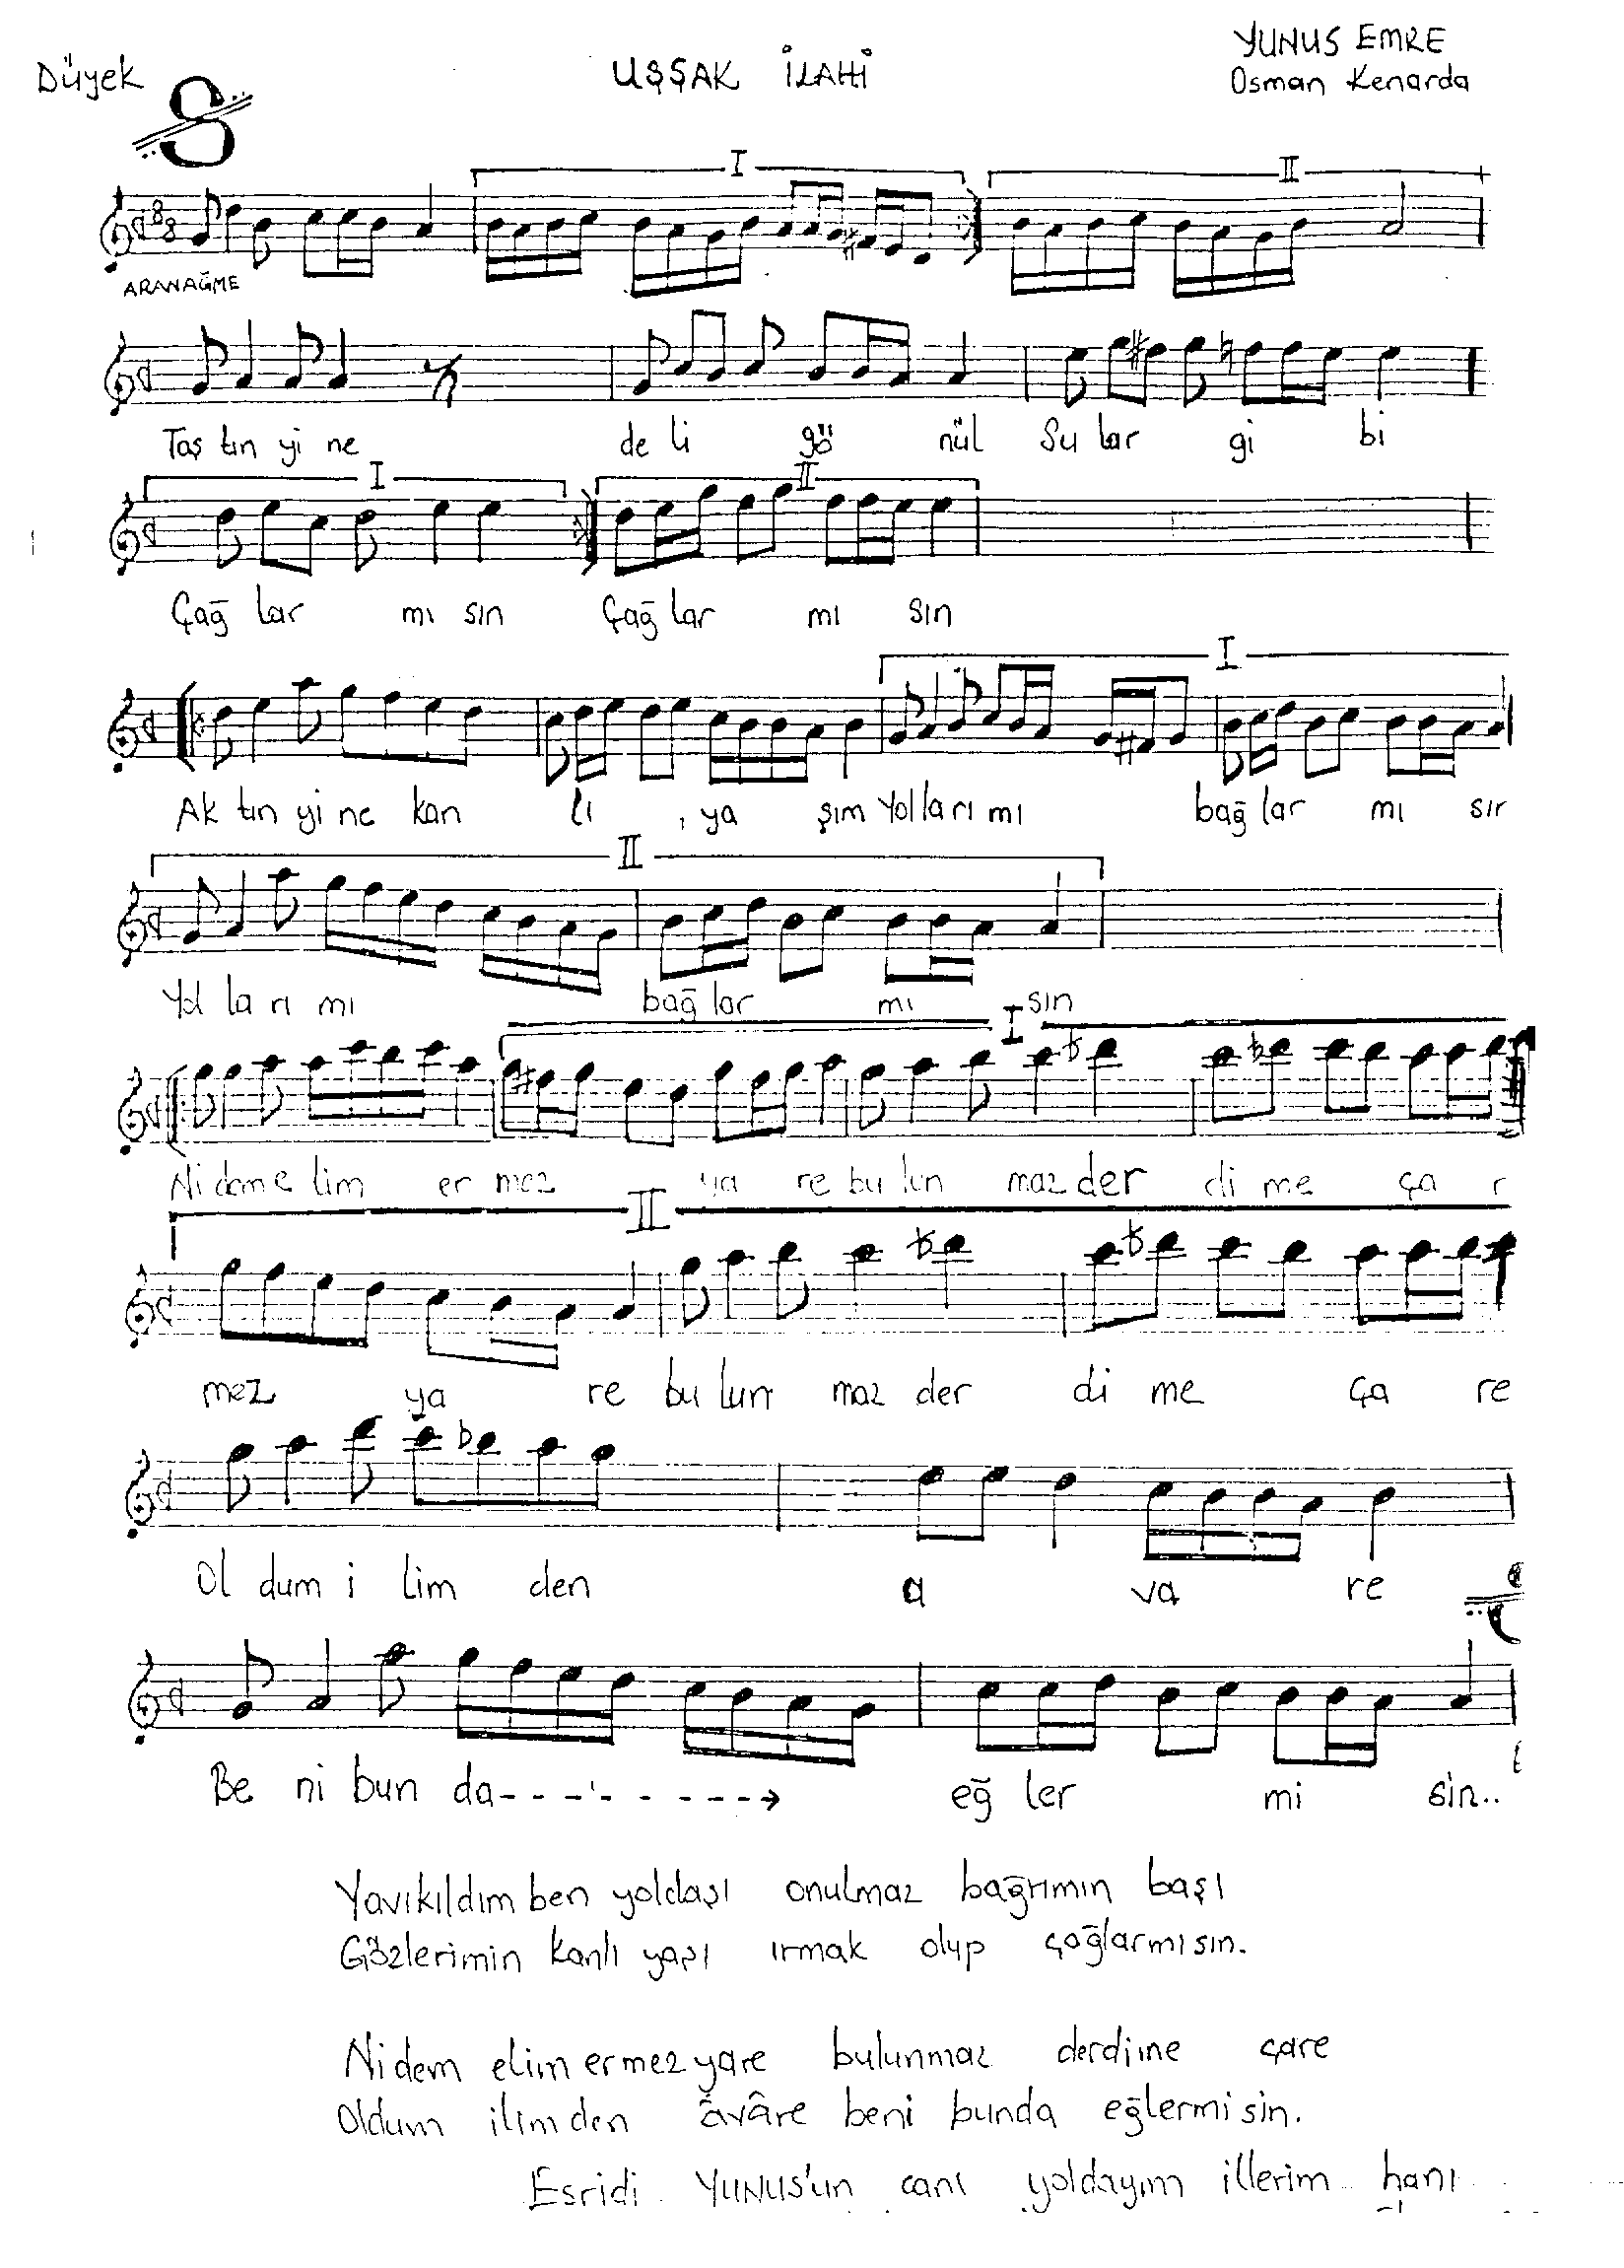 YUNUS EMRE
Düyek UŞŞAK İLAHİ Osman Kenarda
I II
8 8
ARANAĞME
Taş tın yi ne de li gö nül Su lar gi bi
I II
Çağ lar mı sın Çağ lar mı sın
I
Ak tın yi ne kan lı ya şım Yol ları mı bağ lar mı sır
II
Yol la rı mı bağ lar mı sın
I
Ni deme lim er mez ya re bu lun maz der di me ça r
II
mez ya re bu lun maz der di me ça re
Ol dum i lim den a va re
Be ni bun da eğ ler mi sin..
Yavıkıldım ben yoldaşı onulmaz bağrımın başı
Gözlerimin kanlı yaşı ırmak olup çağlarmısın.
Nidem elim ermez yare bulunmaz derdime çare
Oldum ilimden âvâre beni bunda eğlermisin.
Esridi YUNUS'un canı yoldayım illerim hanı